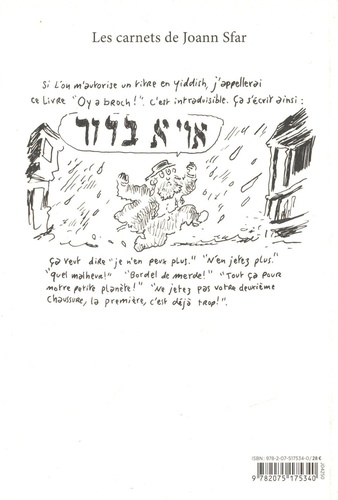 Les carnets de Joann Sfar
Si l'on m'autorise un titre en yiddish, j'appellerai
ce livre "Oy a broch!". C'est intraduisible. Ça s'écrit ainsi :
אוי א ברוך
Ça veut dire "je n'en peux plus." "N'en jetez plus."
"quel malheur!" "Bordel de merde!" "Tout ça pour
notre petite planète!" "Ne jetez pas votre deuxième
chaussure, la première, c'est déjà trop!".
ISBN : 978-2-07-517534-0/28 €
9 782075 175340